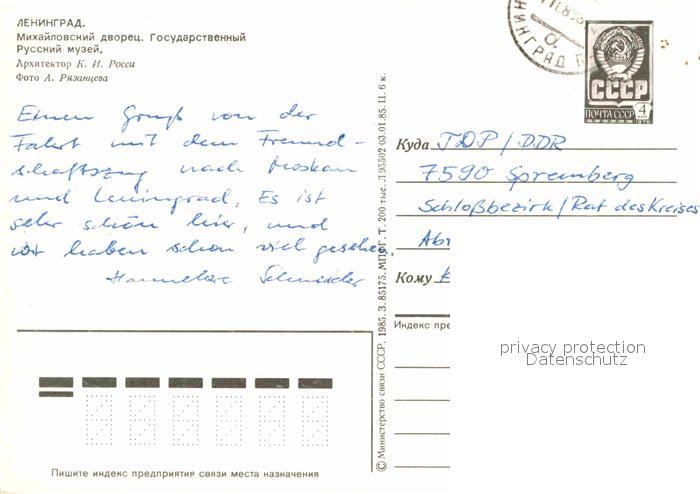 ЛЕНИНГРАД.
Михайловский дворец. Государственный
Русский музей.
Архитектор К. И. Росси
Фото А. Рязанцева
Einen Gruß von der
Fahrt mit dem Freund-
schaftszug nach Moskau
und Leningrad. Es ist
sehr schön hier, und
wir haben schon viel gesehen.
Hannelore
Пишите индекс предприятия связи места назначения
© Министерство связи СССР, 1985. З. 85175. МПФГ. Т. 200 тыс. Л 95502 03.01.85. Ц. 6 к.
СССР
ПОЧТА СССР 4
Куда ГДР / DDR
7590 Spremberg
Schloßbezirk / Rat des Kreises
Abt
Кому
Индекс пре
privacy protection
Datenschutz